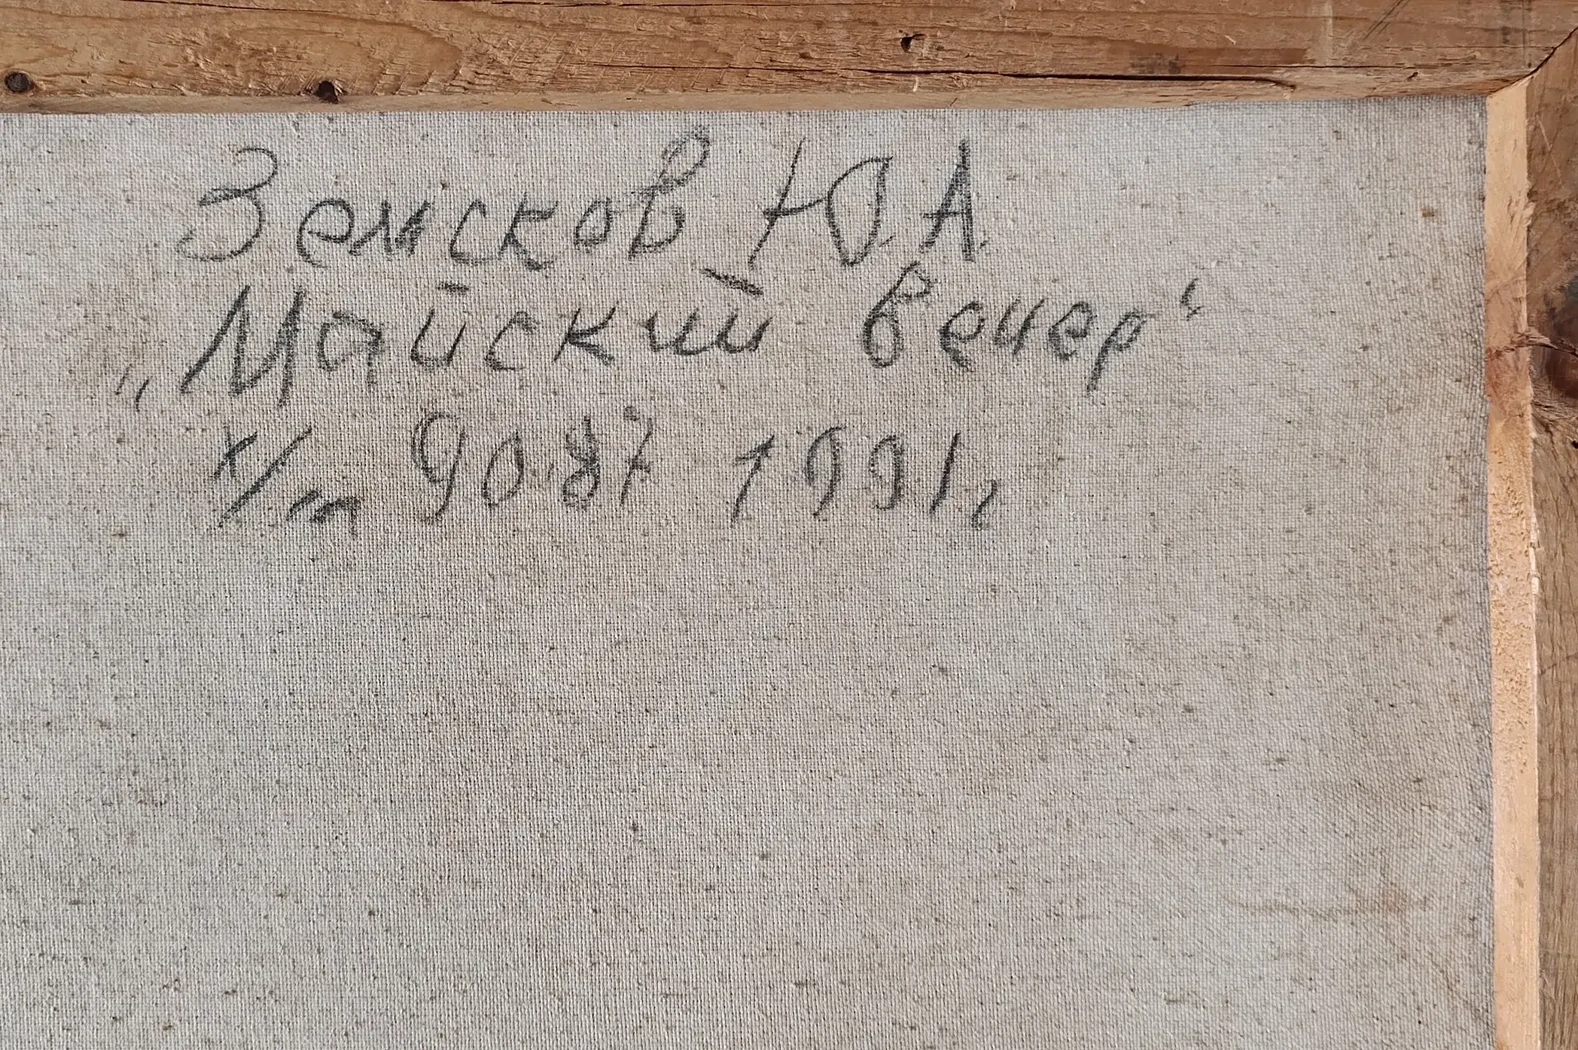 Земсков Ю.А.
„Майский вечер“
х/м 90.87 1991г